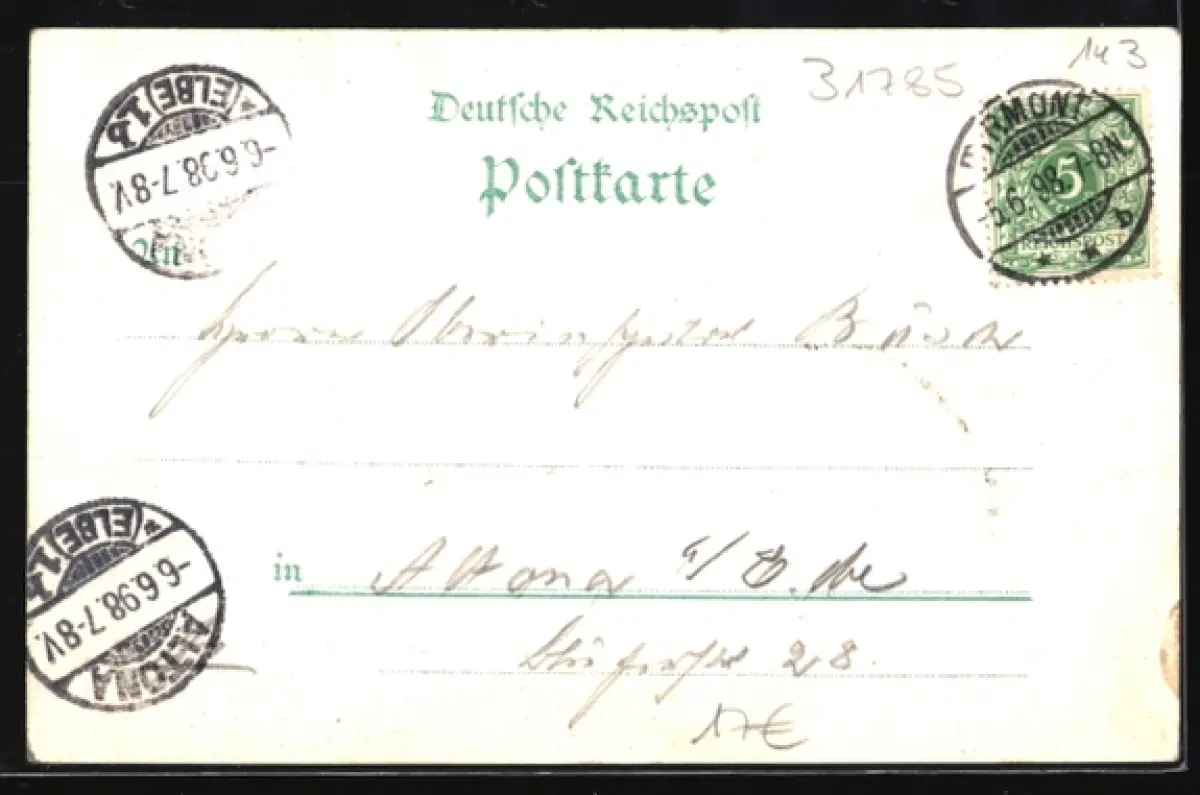 31785
143
Deutsche Reichspost
Postkarte
PYRMONT
-5.6.98.7-8N.
b
5
REICHSPOST
(ELBE) 1b
-6.6.98.7-8V.
An
Herrn Oberinspektor
in Altona a/Elbe
28.
ALTONA (ELBE) 1b
-6.6.98.7-8V.
17€